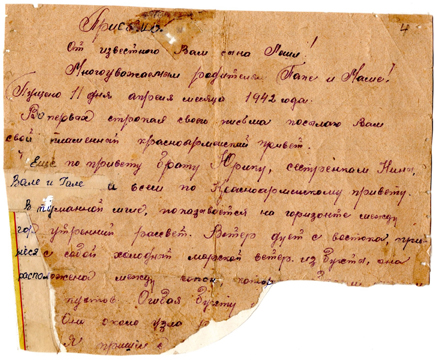 Письмо.
От известного Вам сына Миши!
Многоуважаемым родителям Папе и Маме!
Пущено 11 дня апреля месяца 1942 года.
В первых строках своего письма посылаю Вам
свой пламенный красноармейский привет.
Ещё по привету брату Юрику, сестрёнкам Нине,
Вале и Гале и всем по Красноармейскому привету.
В туманной мгле, показывается на горизонте между
гор утренний рассвет. Ветер дует с востока, при
нёся с собой холодный морской ветер из бухты, она
расположена между сопок,
кустов. Огибая бухту
Они около узла
Я пришёл с